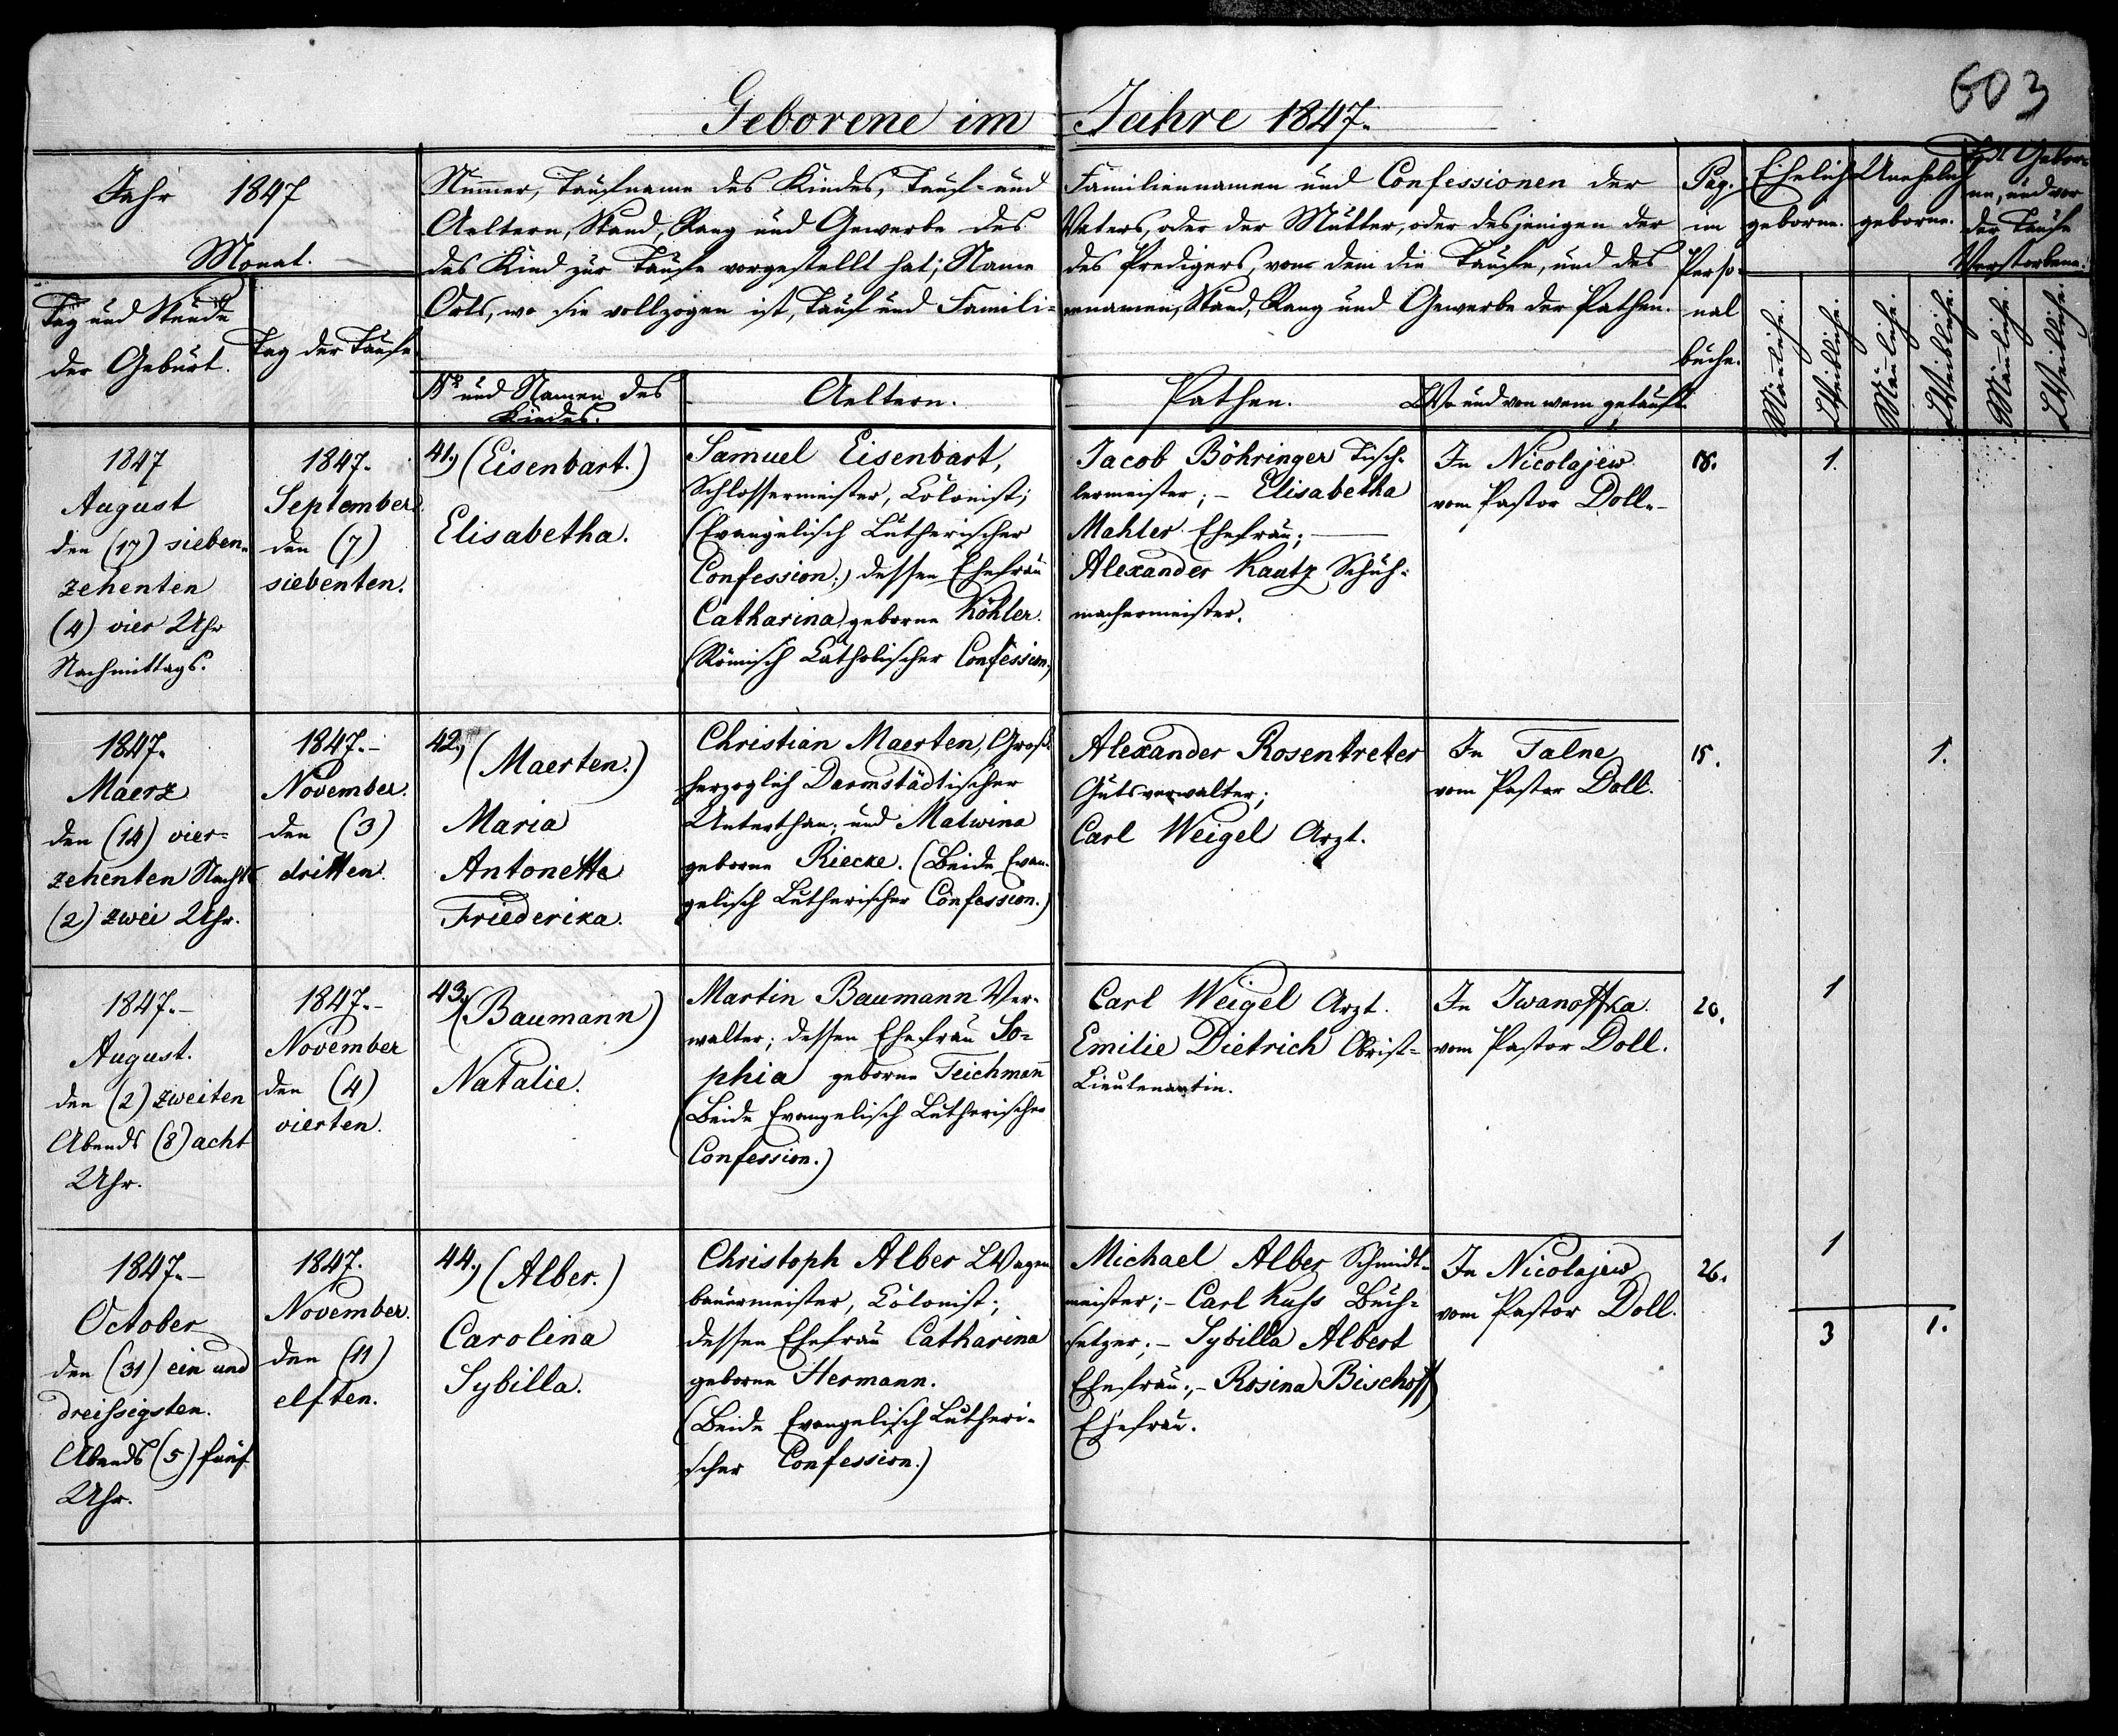 603
Geborene im Jahre 1847.
Jahr 1847
Monat.
Tag und Stunde
der Geburt.
Tag der Taufe.
Nummer, Taufname des Kindes, Tauf- und Familiennamen und Confessionen der
Aeltern, Stand, Rang und Gewerbe des Vaters, oder der Mutter, oder desjenigen der
das Kind zur Taufe vorgestellt hat; Name des Predigers, von dem die Taufe, und des
Orts, wo sie vollzogen ist, Tauf und Famili-ennamen, Stand, Rang und Gewerbe der Pathen.
No und Namen des
Kindes.
Aeltern.
Pathen.
Wo und von wem getauft.
Pag.
im
Perso-
nal
buche.
Ehelich
geborne.
Unehelich
geborne.
Todt Gebor-
ne, und vor
der Taufe
Verstorbene.
Männliche.
Weibliche.
Männliche.
Weibliche.
Männliche.
Weibliche.
1847
August
den (17) sieben-
zehenten
(4) vier Uhr
Nachmittags.
1847.
September
den (7)
siebenten.
41.) (Eisenbart.)
Elisabetha.
Samuel Eisenbart,
Schlossermeister, Colonist;
(Evangelisch Lutherischer
Confession;) dessen Ehefrau
Catharina, geborne Köhler.
(Römisch Catholischer Confession;)
Jacob Böhringer Tisch-
lermeister; - Elisabetha
Mahler Ehefrau;
Alexander Kautz Schuh-
machermeister.
In Nicolajew
vom Pastor Doll.-
18.
1.
1847.
Maerz
den (14) vier-
zehenten Nachts
(2) zwei Uhr.
1847.-
November.
den (3)
dritten.
42.) (Maerten.)
Maria
Antonette
Friederika.
Christian Maerten, Groß-
herzoglich Darmstädtischer
Unterthan; und Malwina
geborne Riecke. (Beide Evan-
gelisch Lutherischer Confession.)
Alexander Rosentreter
Gutsverwalter;
Carl Weigel Arzt.
In Talne
vom Pastor Doll.
15.
1.
1847.-
August.
den (2) zweiten
Abends (8) acht
Uhr.
1847.-
November
den (4)
vierten.
43.) (Baumann)
Natalie.
Martin Baumann Ver-
walter; dessen Ehefrau So-
phia geborne Teichmann
(Beide Evangelisch Lutherischer
Confession.)
Carl Weigel Arzt.
Emilie Dietrich Obrist-
Lieutenantin.
In Iwanoffka
vom Pastor Doll.
20.
1
1847.-
October
den (31) ein und
dreißigsten.
Abends (5) fünf
Uhr.
1847.
November.
den (11)
elften.
44.) (Alber.)
Carolina
Sybilla.
Christoph Alber Wagen-
bauermeister, Colonist;
dessen Ehefrau Catharina
geborne Hermann.
(Beide Evangelisch Lutheri-
scher Confession.)
Michael Alber Schmidt-
meister; - Carl Kuss Buch-
setzer; - Sybilla Albert
Ehefrau; - Rosina Bischoff
Ehefrau.
In Nicolajew
vom Pastor Doll.
26.
1
3
1.